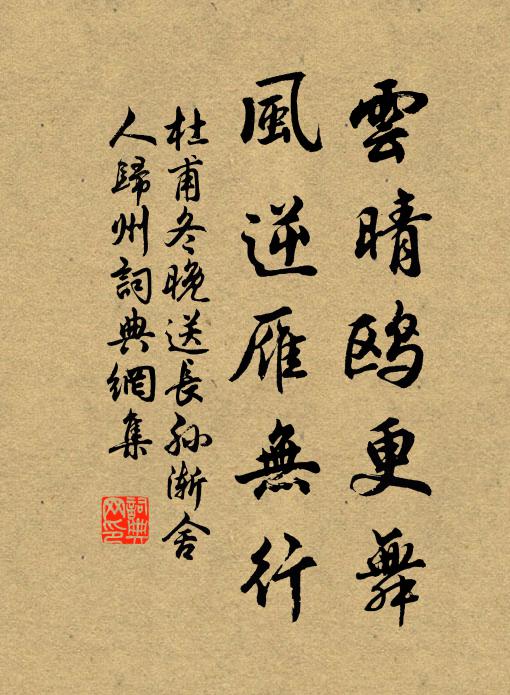 雲晴鸥更舞
風逆雁無行
杜甫冬晚送長孙渐舍
人歸州詞典網集
詞典网印